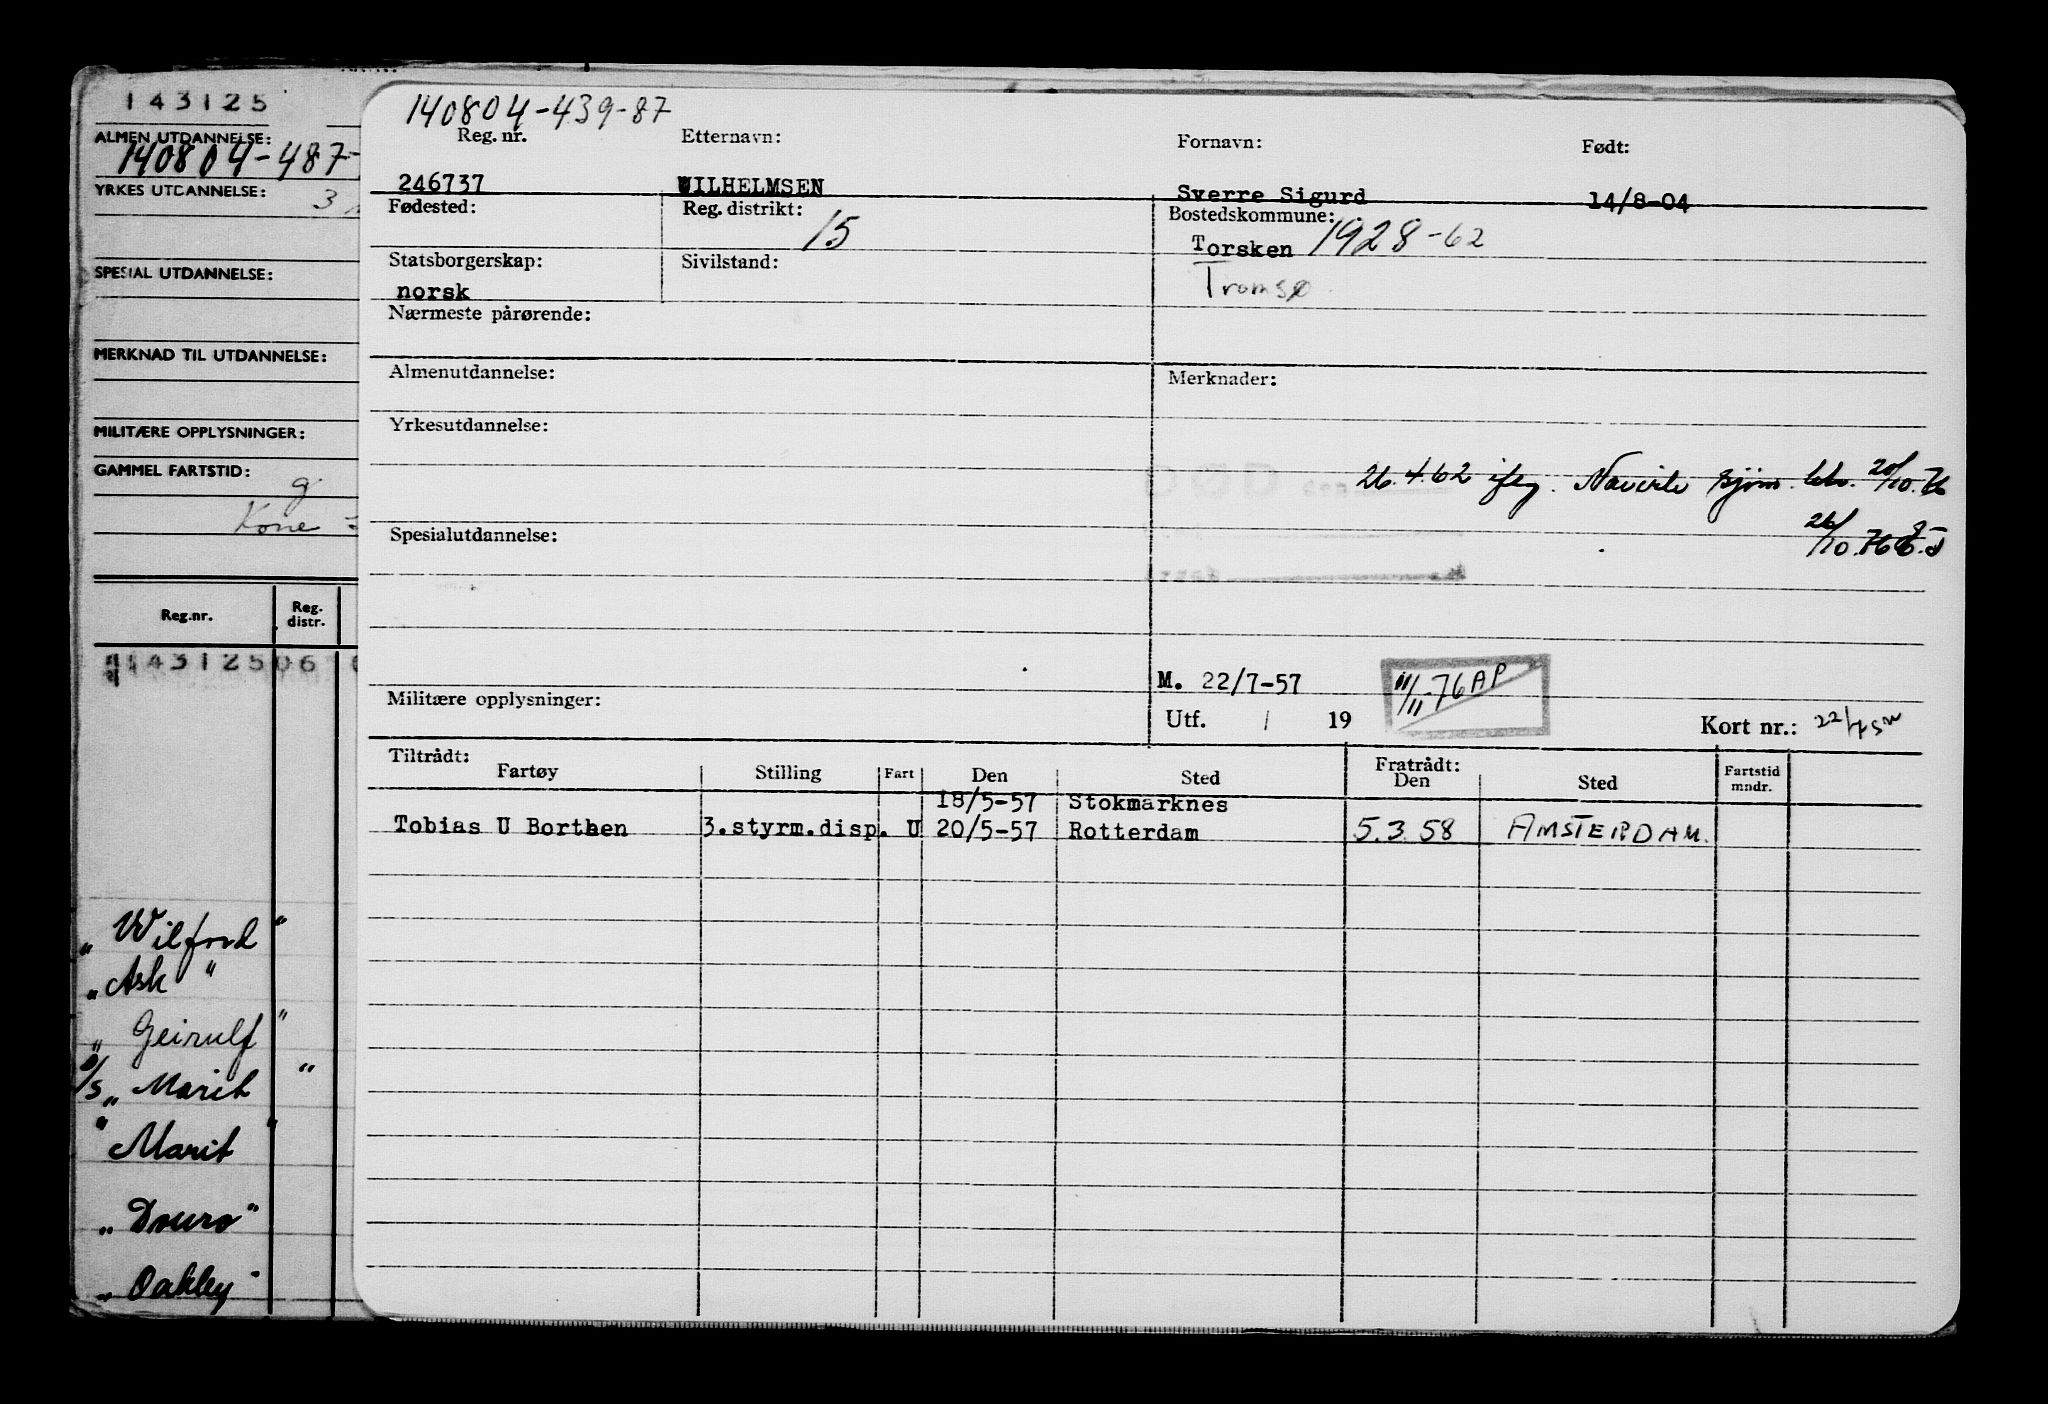 143125
ALMEN UTDANNELSE:
140804-487-
YRKES UTDANNELSE: 3
SPESIAL UTDANNELSE:
MERKNAD TIL UTDANNELSE:
MILITÆRE OPPLYSNINGER:
GAMMEL FARTSTID:
g.
Kone
Reg.nr. Reg. distr.
143125 06
„Wilford"
„Ask"
„Geirulf"
„Marit"
"Marit"
„Douro"
„Oakley"
140804-439-87
Reg. nr. Etternavn: Fornavn: Født:
246737 WILHELMSEN Sverre Sigurd 14/8-04
Fødested: Reg. distrikt: 15 Bostedskommune:
Torsken 1928-62
Statsborgerskap: Sivilstand: Tromsø
norsk
Nærmeste pårørende:
Almenutdannelse: Merknader:
Yrkesutdannelse:
DØD
26.4.62 iflg. 20/10.76
26/10.76
Spesialutdannelse:
M. 22/7-57
11/11-76 AP
Militære opplysninger: Utf. / 19 Kort nr.: 22/7
Tiltrådt: Fratrådt:
Fartøy Stilling Fart Den Sted Den Sted Fartstid mndr.
18/5-57 Stokmarknes
Tobias U Borthen 3.styrm.disp. U 20/5-57 Rotterdam 5.3.58 AMSTERDAM.